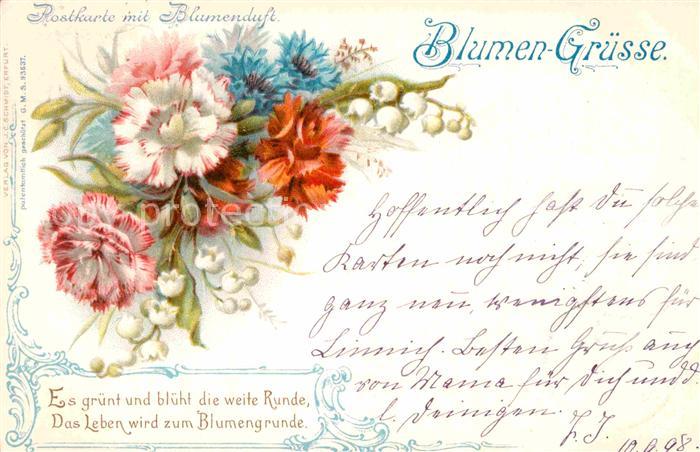 Postkarte mit Blumenduft.
Blumen-Grüsse.
VERLAG VON J.C. SCHMIDT, ERFURT.
patentamtlich geschützt G. M. S. 93537.
Hoffentlich hast Du solche
Karten noch nicht, sie sind
ganz neu, wenigstens für
Linnich. Besten Gruß auch
von Mama für Dich und d
l. Deinigen.
F. J.
10.9.98.
Es grünt und blüht die weite Runde,
Das Leben wird zum Blumengrunde.